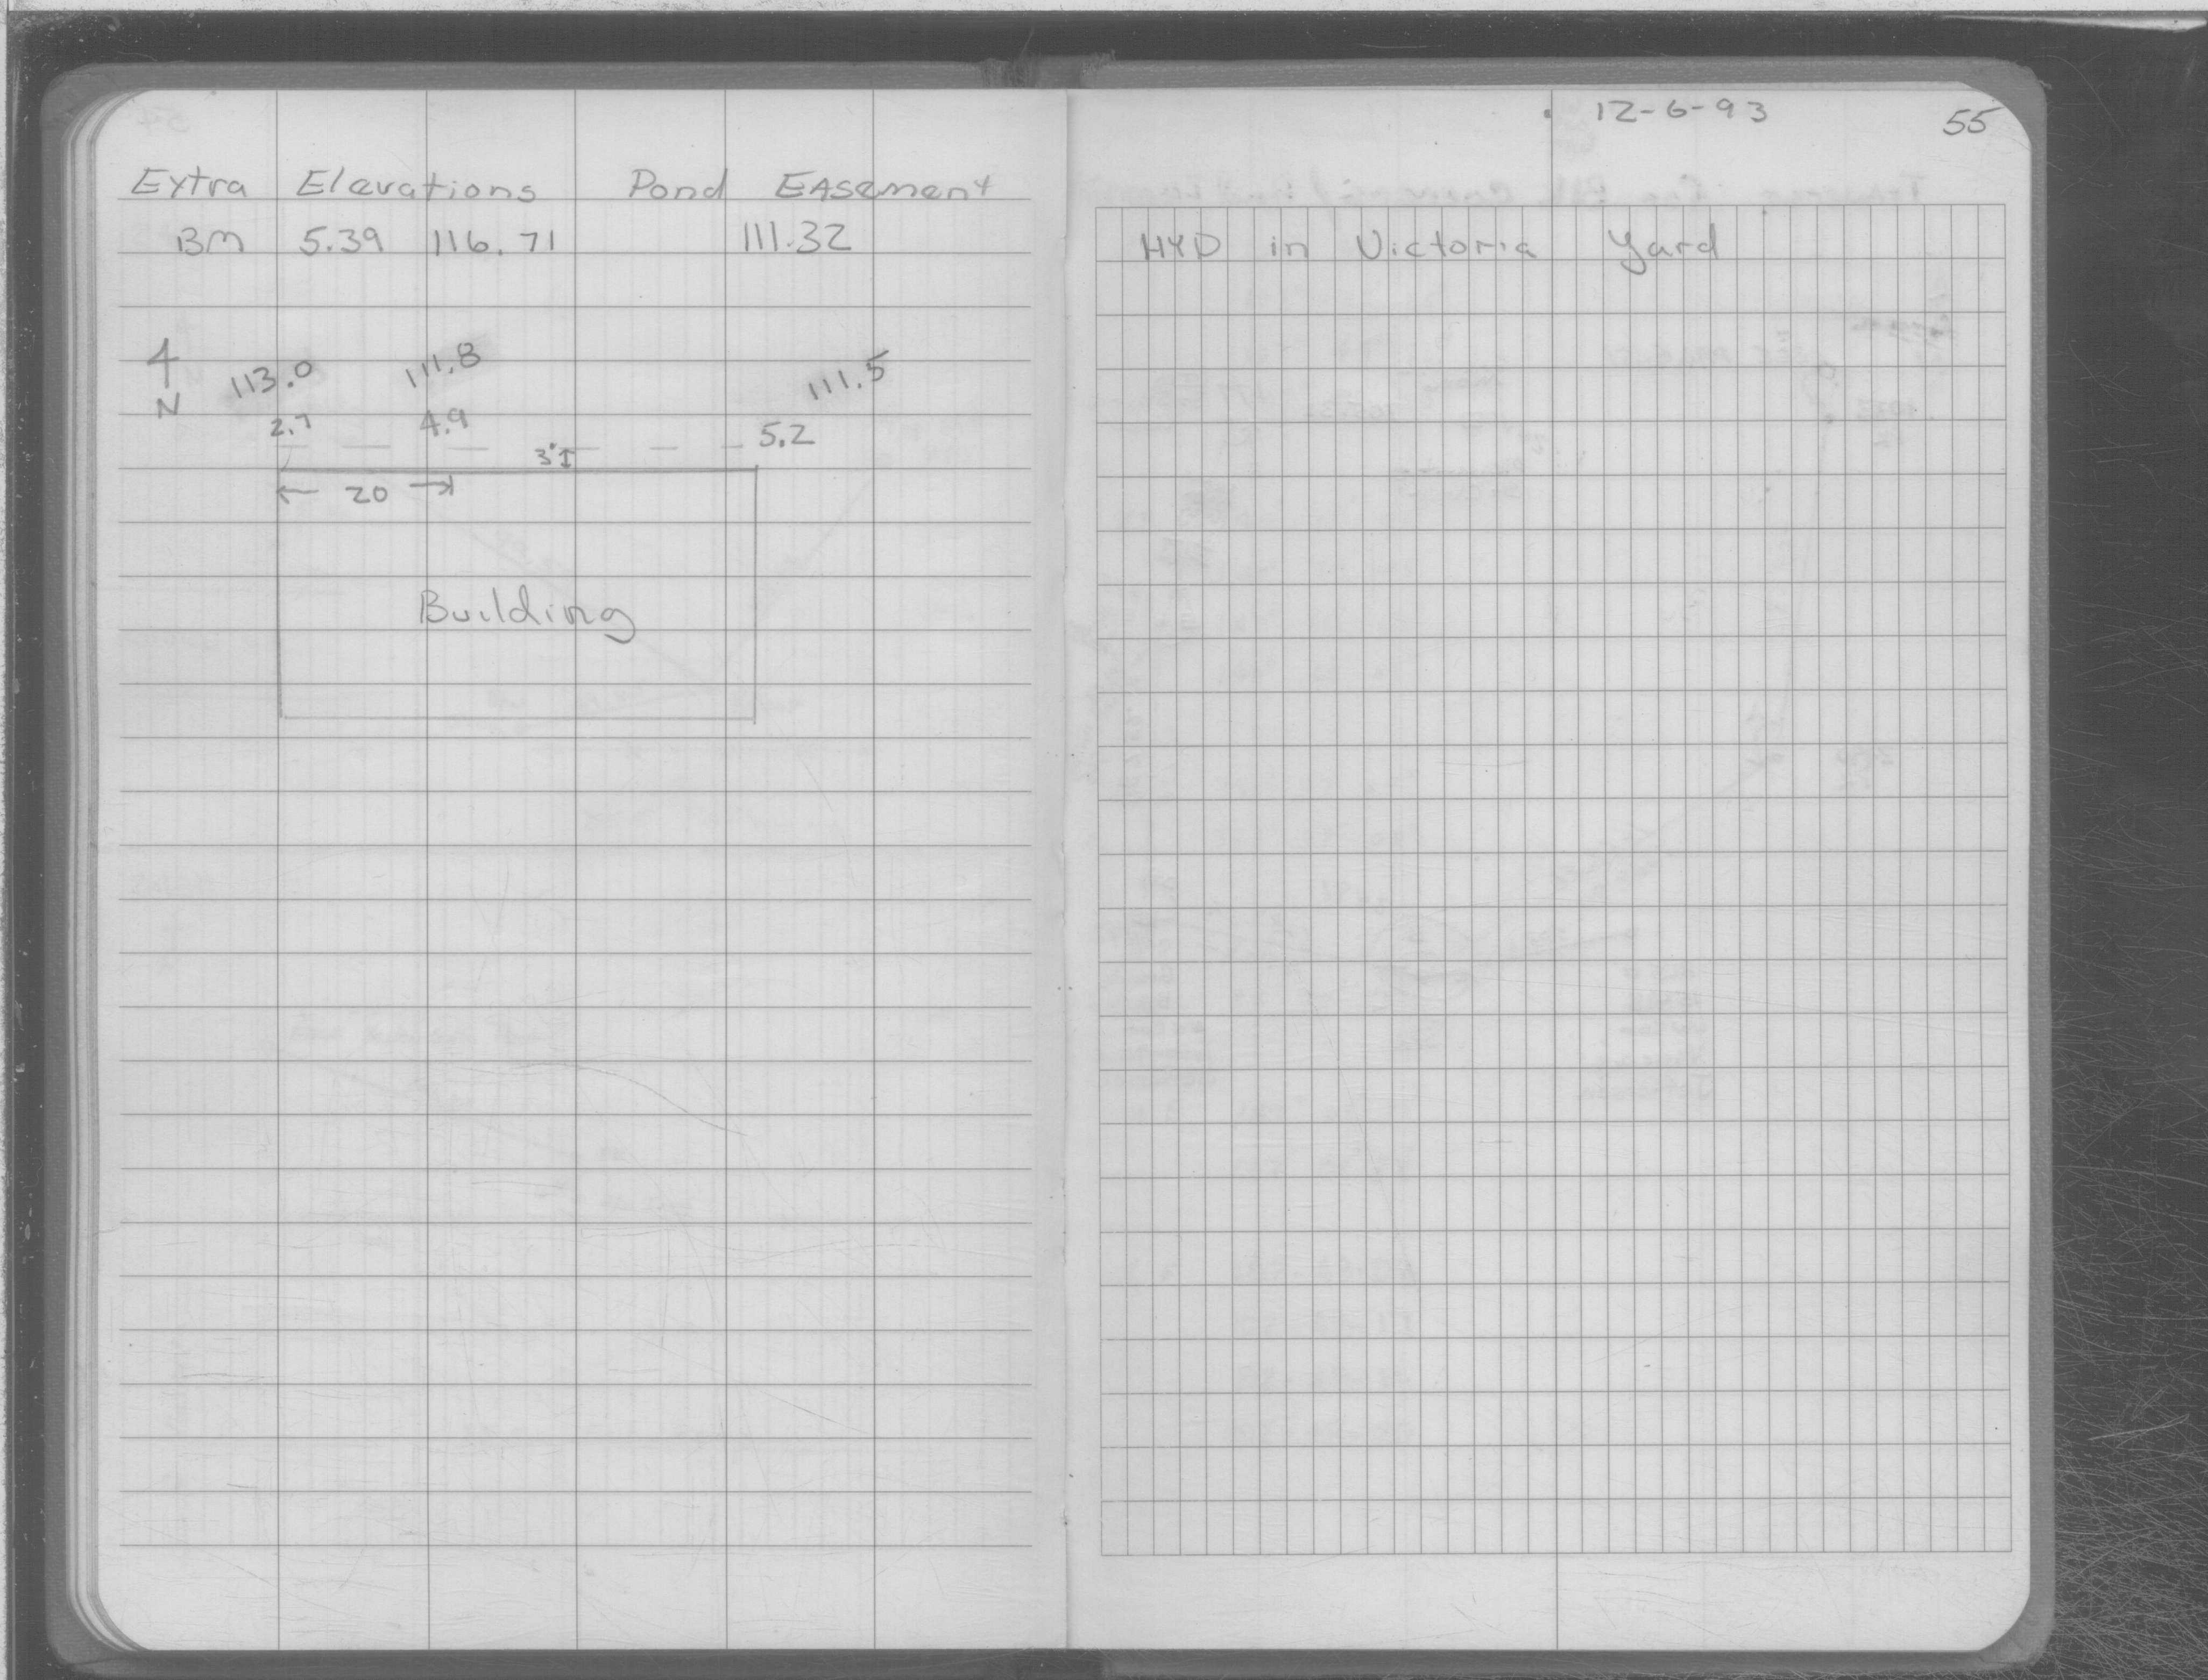 Extra Elevations Pond EAsement
BM 5.39 116.71 111.32
N 113.0 111.8 111.5
2.7 4.9 5.2
3'±
20
Building
12-6-93 55
HYD in Victoria Yard